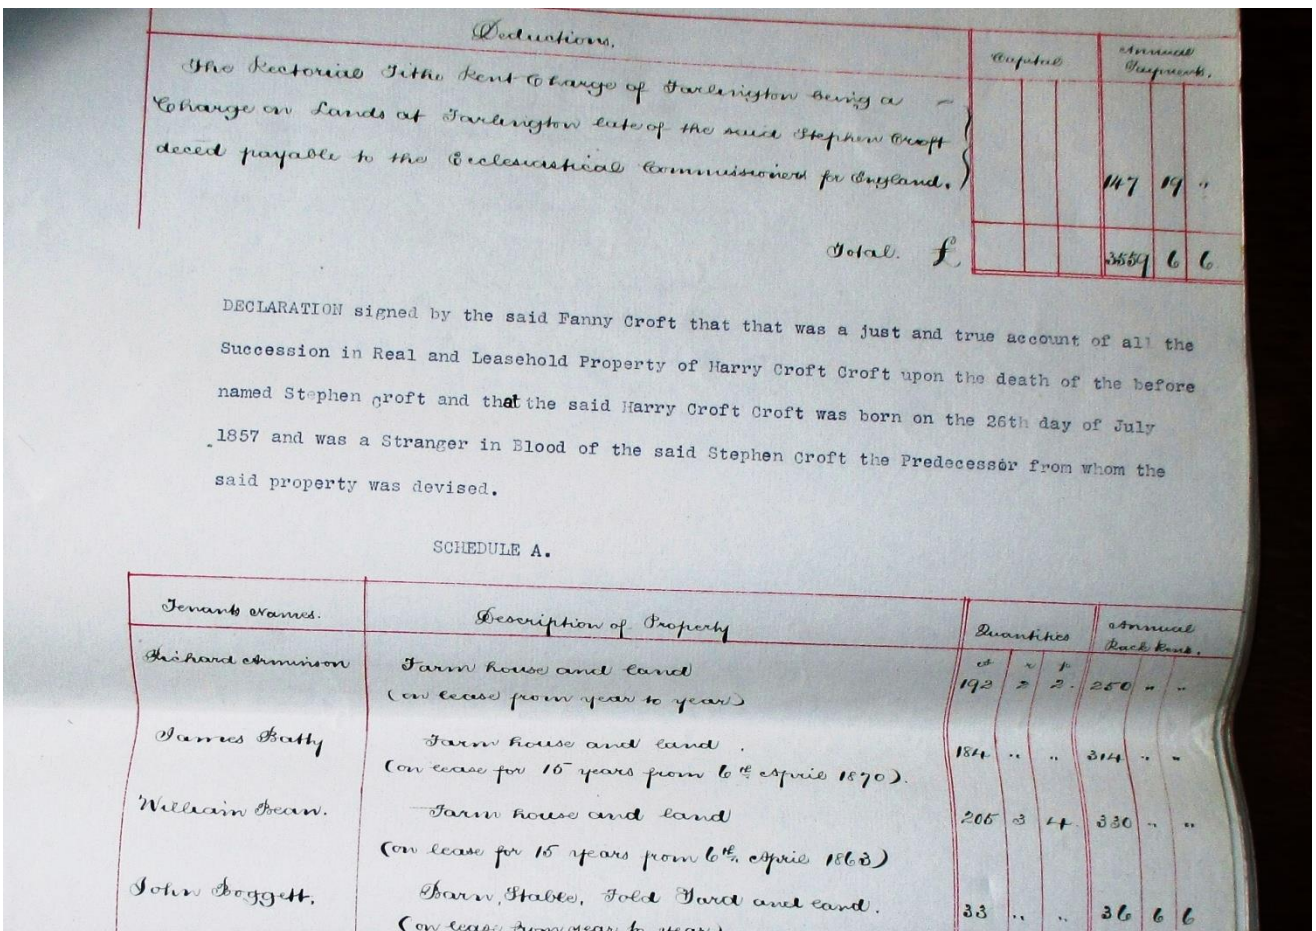 Deductions.
Capital
Annual
Payments.
The Rectorial Tithe Rent Charge of Farlington being a
Charge on Lands at Farlington late of the said Stephen Croft
deced payable to the Ecclesiastical Commissioners for England.
147 19 "
Total. £ 3559 6 6
DECLARATION signed by the said Fanny Croft that that was a just and true account of all the
Succession in Real and Leasehold Property of Harry Croft Croft upon the death of the before
named Stephen Croft and that the said Harry Croft Croft was born on the 26th day of July
1857 and was a Stranger in Blood of the said Stephen Croft the Predecessor from whom the
said property was devised.
SCHEDULE A.
Tenants Names.
Description of Property
Quantities
Annual
Rack Rent.
a r p
Richard Arminson Farm house and land
(on lease from year to year) 192 2 2. 250 " "
James Batty Farm house and land.
(on lease for 15 years from 6th April 1870). 184 " " 314 " "
William Bean. Farm house and land 205 3 4. 330 " "
(on lease for 15 years from 6th April 1863)
John Boggett. Barn, Stable, Fold Yard and land. 33 " " 36 6 6
(on lease from year to year)